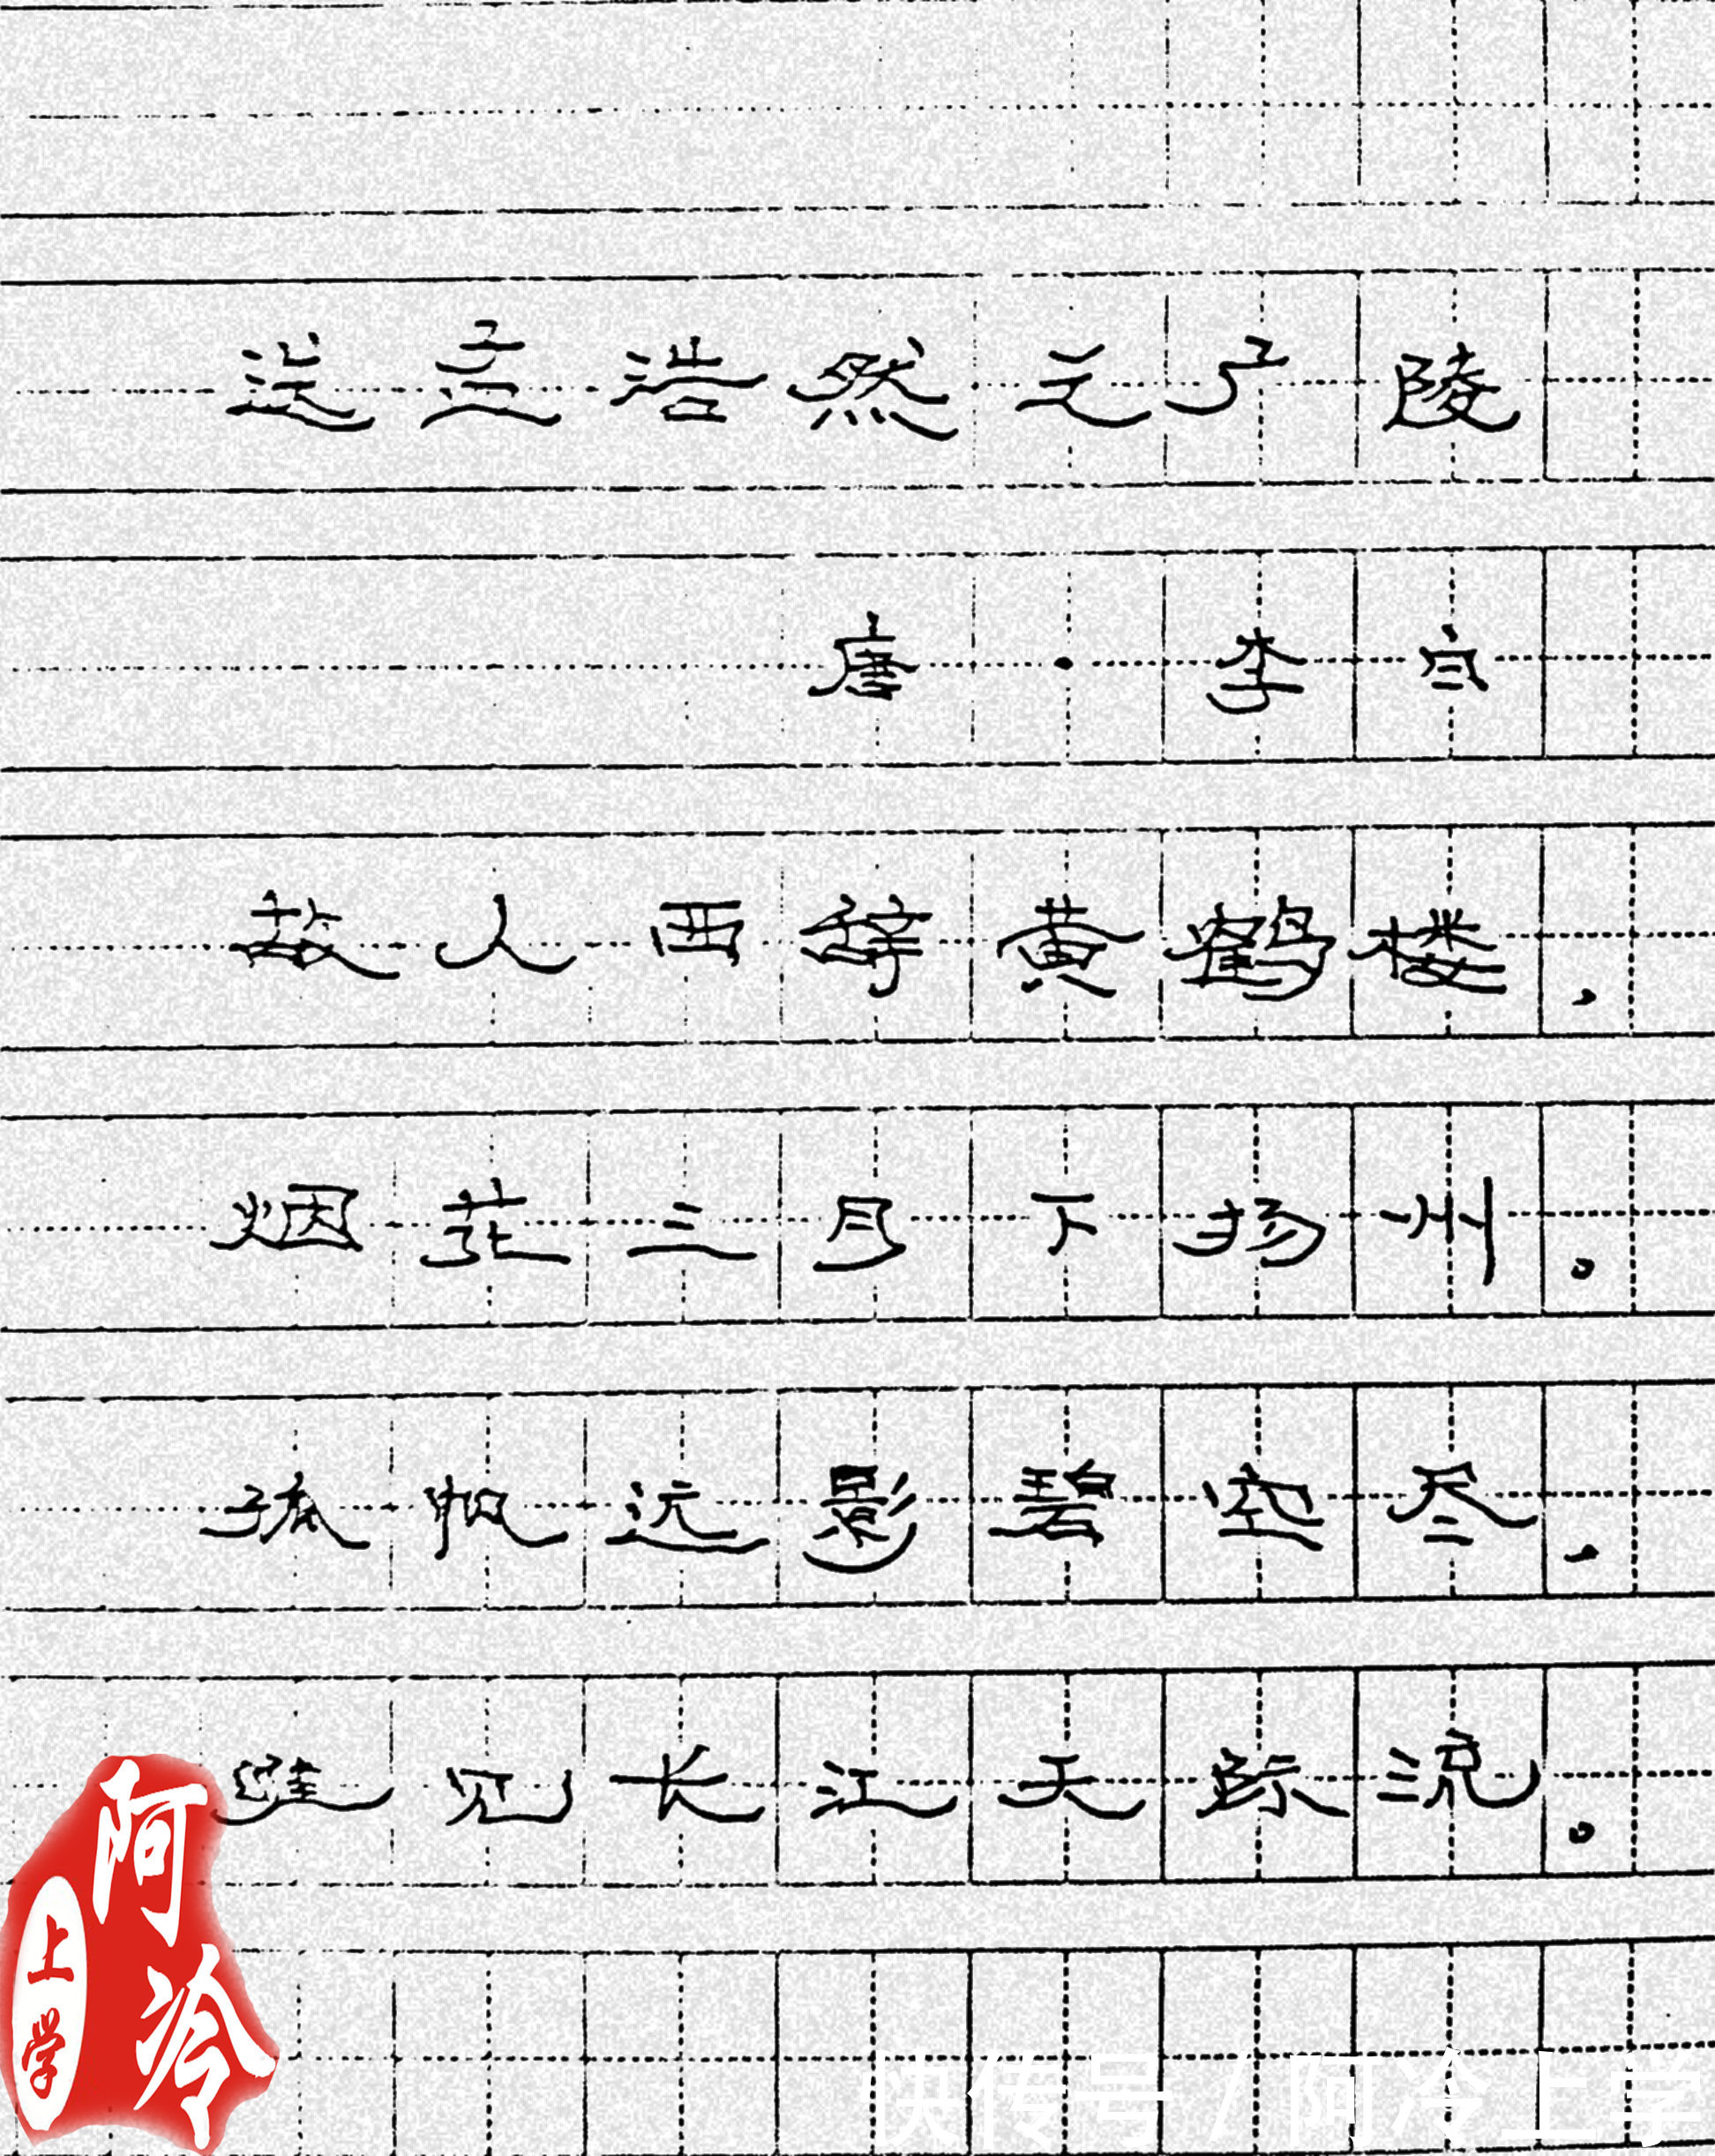 送孟浩然之广陵
唐·李白
故人西辞黄鹤楼，
烟花三月下扬州。
孤帆远影碧空尽，
唯见长江天际流。
阿冷
上学
快传号 / 阿冷上学